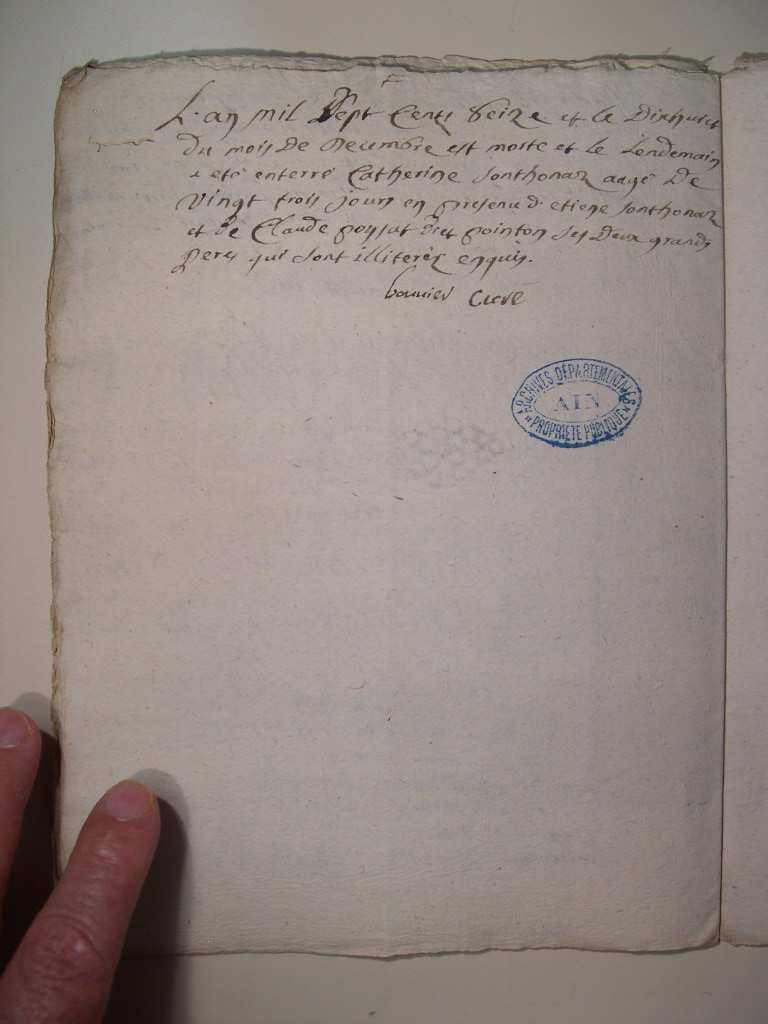 L'an mil Sept Cents Seize et le Dixhuict
Du mois De Decembre est morte et le Lendemain
a eté enterré Catherine Sonthonaz aagé De
Vingt trois jours en presence d'etiene Sonthonaz
et de Claude poysat dict pointon ses Deux grands
peres qui sont illiterés enquis.
bouvier Curé
ARCHIVES DÉPARTEMENTALES
AIN
PROPRIÉTÉ PUBLIQUE